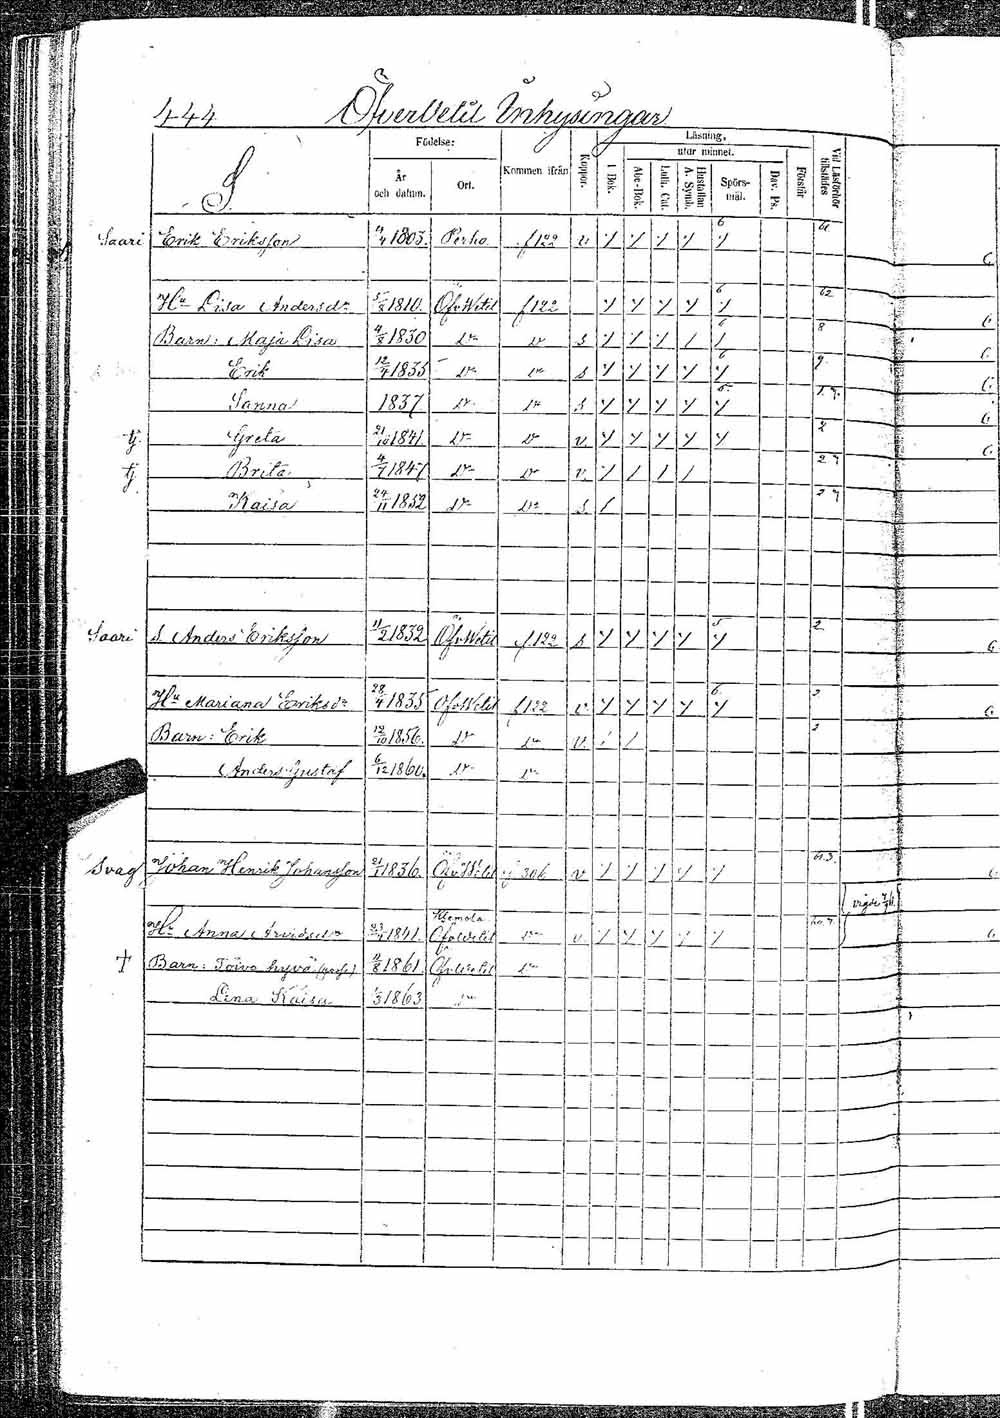 444 Öfvervetil Inhysingar
S
Födelse:
År och datum.
Ort.
Kommen ifrån
Koppor.
Läsning,
I Bok.
utur minnet.
Abc-Bok.
Luth. Cat.
Hustaflan A. Symb.
Spörs-mål.
Dav. Ps.
Förstår
Vid Läsförhör tillstädes
Saari Erik Eriksson 4/4 1803. Perho f 122 v 6 61
Hu Lisa Andersdr 5/2 1810. ÖfvWetil f 122 6 62
Barn: Maja Lisa 4/2 1830 dr dr s 6 8
Erik 12/4 1835 dr dr s 6 9.
Sanna 1837 dr dr s 6
tj. Greta 21/10 1841. dr dr v. 2
tj Brita 4/7 1847 dr dr v. 2 7
Kaisa 24/11 1852 dr dr s 2 7
Saari S. Anders Eriksson 11/2 1832 ÖfvWetil f. 122 s 5 2
Hu Mariana Eriksdr 28/4 1835 ÖfvWetil f 122 v 6 2
Barn: Erik 12/10 1856. dr dr v. 2
Anders Gustaf 6/12 1860. dr dr
Svag Johan Henrik Johansson 21/1 1836. ÖfvWetil f 306 v 61.3.
vigde
Hu Anna Arvidsdr 23/4 1841. Öfvvetil dr v.
† Barn: Toivo hyvä 4/8 1861 Öfvvetil dr
Lina Kaisa 1/3 1863 dr dr